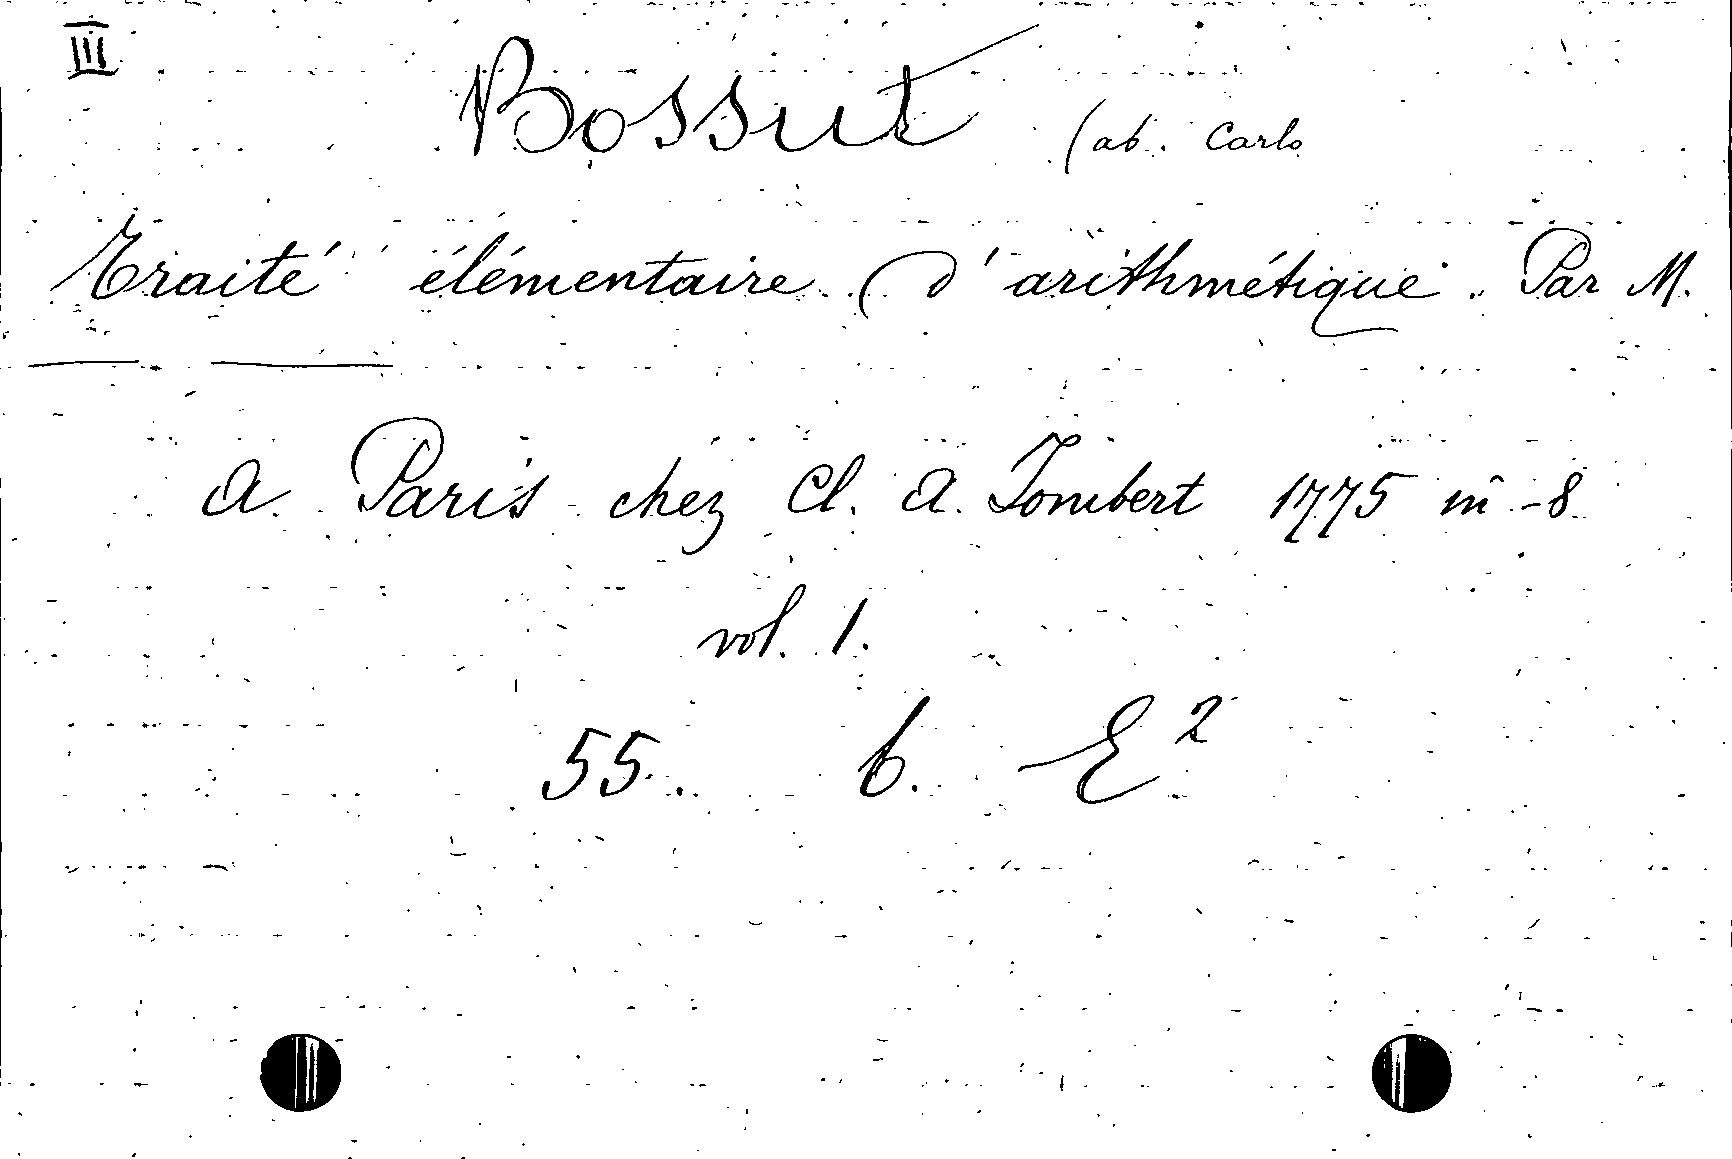 III
Bossut (ab. Carlo
Traité élémentaire d'arithmétique. Par M.
— —
A Paris chez Cl. A. Jombert 1775 in-8
vol. 1.
55. b. E²